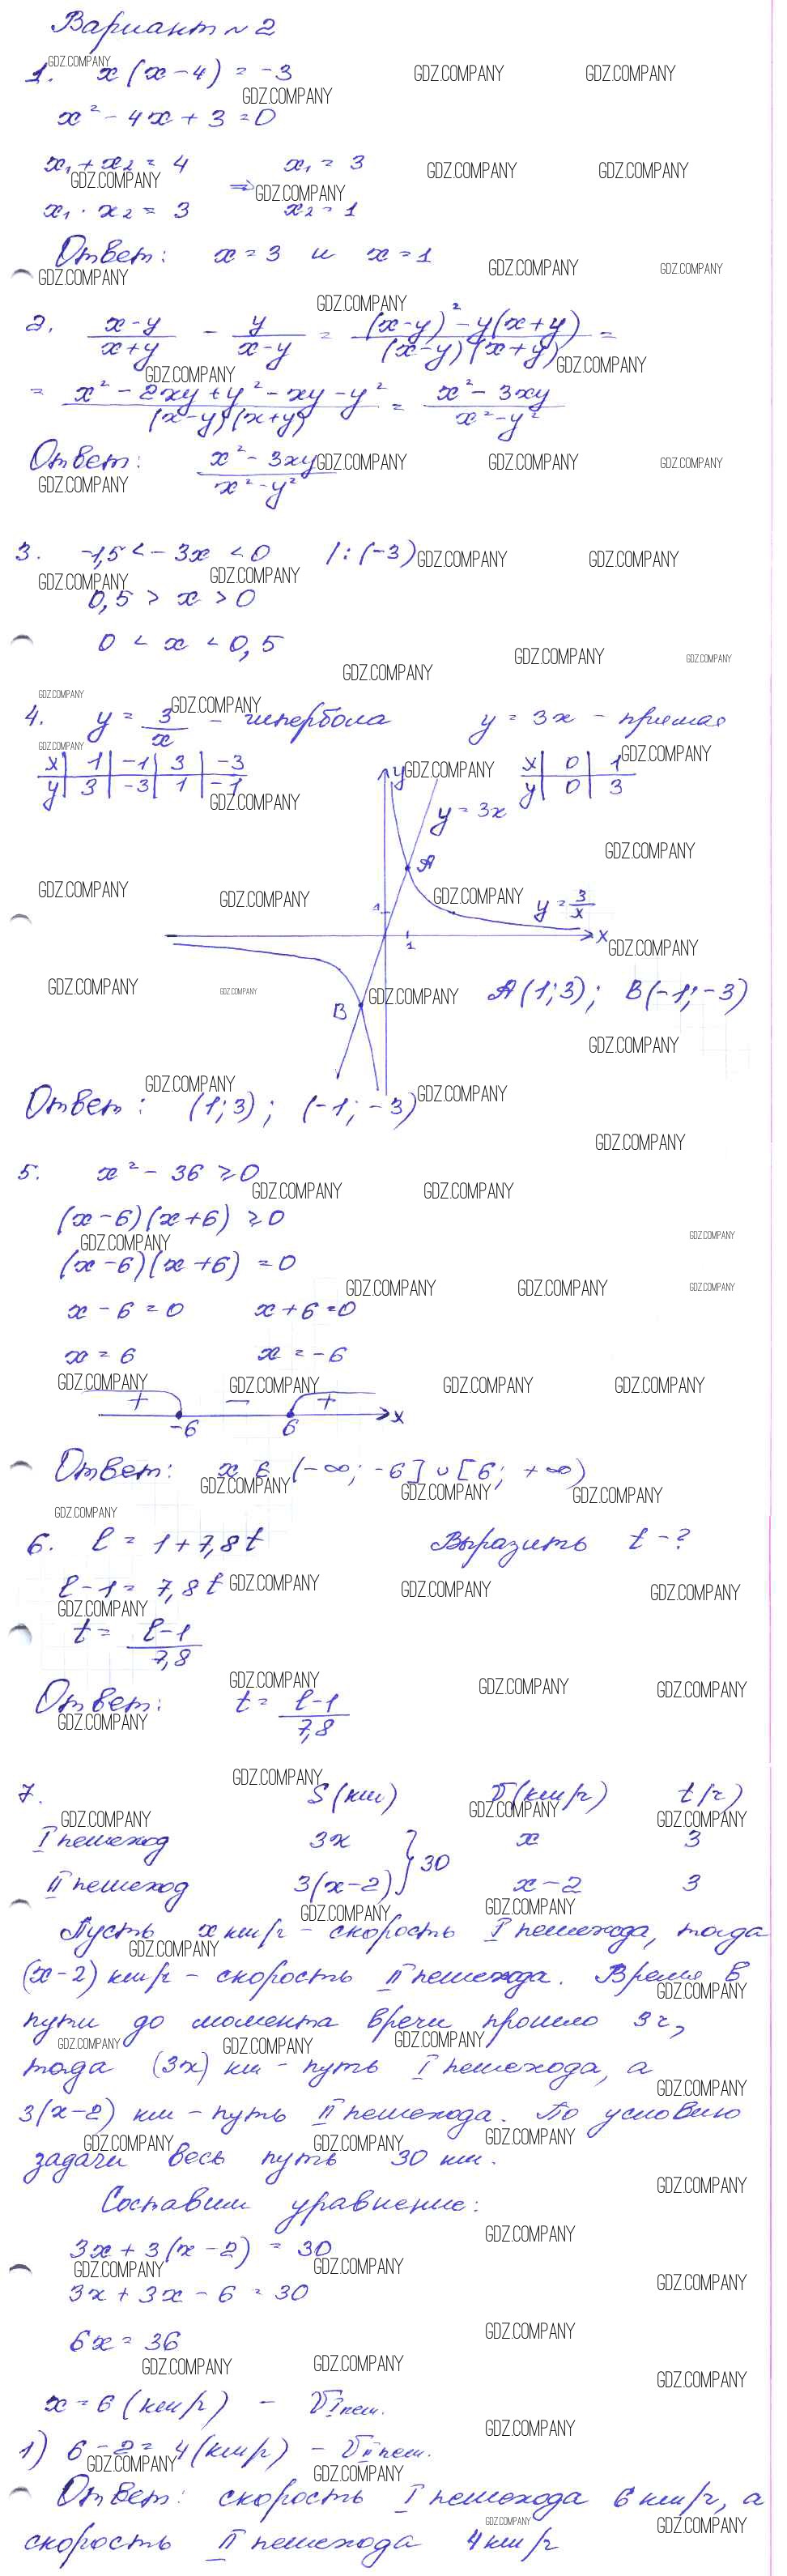 Вариант №2
1. x(x-4) = -3
x² - 4x + 3 = 0
x₁ + x₂ = 4 x₁ = 3
⇒
x₁ · x₂ = 3 x₂ = 1
Ответ: x = 3 и x = 1
2. (x-y)/(x+y) - y/(x-y) = ((x-y)² - y(x+y))/((x-y)(x+y)) =
= (x² - 2xy + y² - xy - y²)/((x-y)(x+y)) = (x² - 3xy)/(x² - y²)
Ответ: (x² - 3xy)/(x² - y²)
3. -1,5 < -3x < 0 | : (-3)
0,5 > x > 0
0 < x < 0,5
4. y = 3/x - гипербола y = 3x - прямая
x | 1 | -1 | 3 | -3 x | 0 | 1
y | 3 | -3 | 1 | -1 y | 0 | 3
y
y = 3x
A
y = 3/x
1
1
x
B
A(1;3); B(-1;-3)
Ответ: (1;3); (-1;-3)
5. x² - 36 ≥ 0
(x-6)(x+6) ≥ 0
(x-6)(x+6) = 0
x - 6 = 0 x + 6 = 0
x = 6 x = -6
+ - +
-6 6 x
Ответ: x ∈ (-∞; -6] ∪ [6; +∞)
6. ℓ = 1 + 7,8t Выразить t - ?
ℓ - 1 = 7,8t
t = (ℓ-1)/7,8
Ответ: t = (ℓ-1)/7,8
7. S(км) V(км/ч) t(ч)
I пешеход 3x x 3
} 30
II пешеход 3(x-2) x-2 3
Пусть x км/ч - скорость I пешехода, тогда
(x-2) км/ч - скорость II пешехода. Время в
пути до момента вречи прошло 3ч,
тогда (3x) км - путь I пешехода, а
3(x-2) км - путь II пешехода. По условию
задачи весь путь 30 км.
Составим уравнение:
3x + 3(x-2) = 30
3x + 3x - 6 = 30
6x = 36
x = 6 (км/ч) - V I пеш.
1) 6 - 2 = 4 (км/ч) - V II пеш.
Ответ: скорость I пешехода 6 км/ч, а
скорость II пешехода 4 км/ч
GDZ.COMPANY